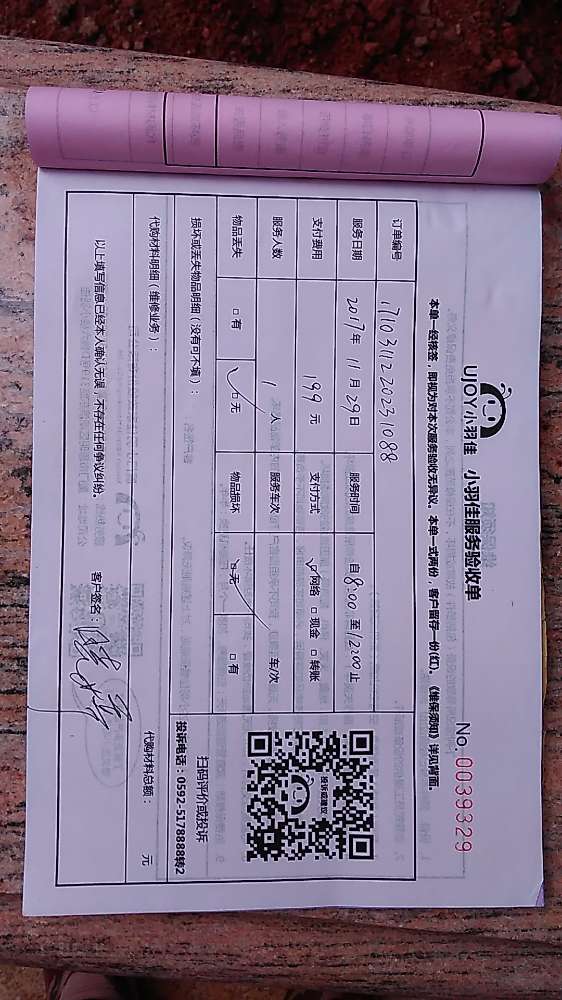 UJOY小羽佳 小羽佳服务验收单
No.0039329
本单一经核签，即视为对本次服务验收无异议。本单一式两份，客户留存一份(红)。《维保须知》详见背面。
订单编号 171031122023 1088
服务日期 2017年 11月 29日 服务时间 自 8:00 至 12:00 止
支付费用 199 元 支付方式 ☑网络 □现金 □转账
服务人数 1 人 服务车次 车/次
物品丢失 □有 ☑无 物品损坏 ☑无 □有
损坏或丢失物品明细（没有可不填）：
投诉或建议
扫码评价或投诉
投诉电话：0592-5178888转2
代购材料明细（维修业务）：
代购材料总额： 元
以上填写信息已经本人确认无误，不存在任何争议纠纷。 客户签名：